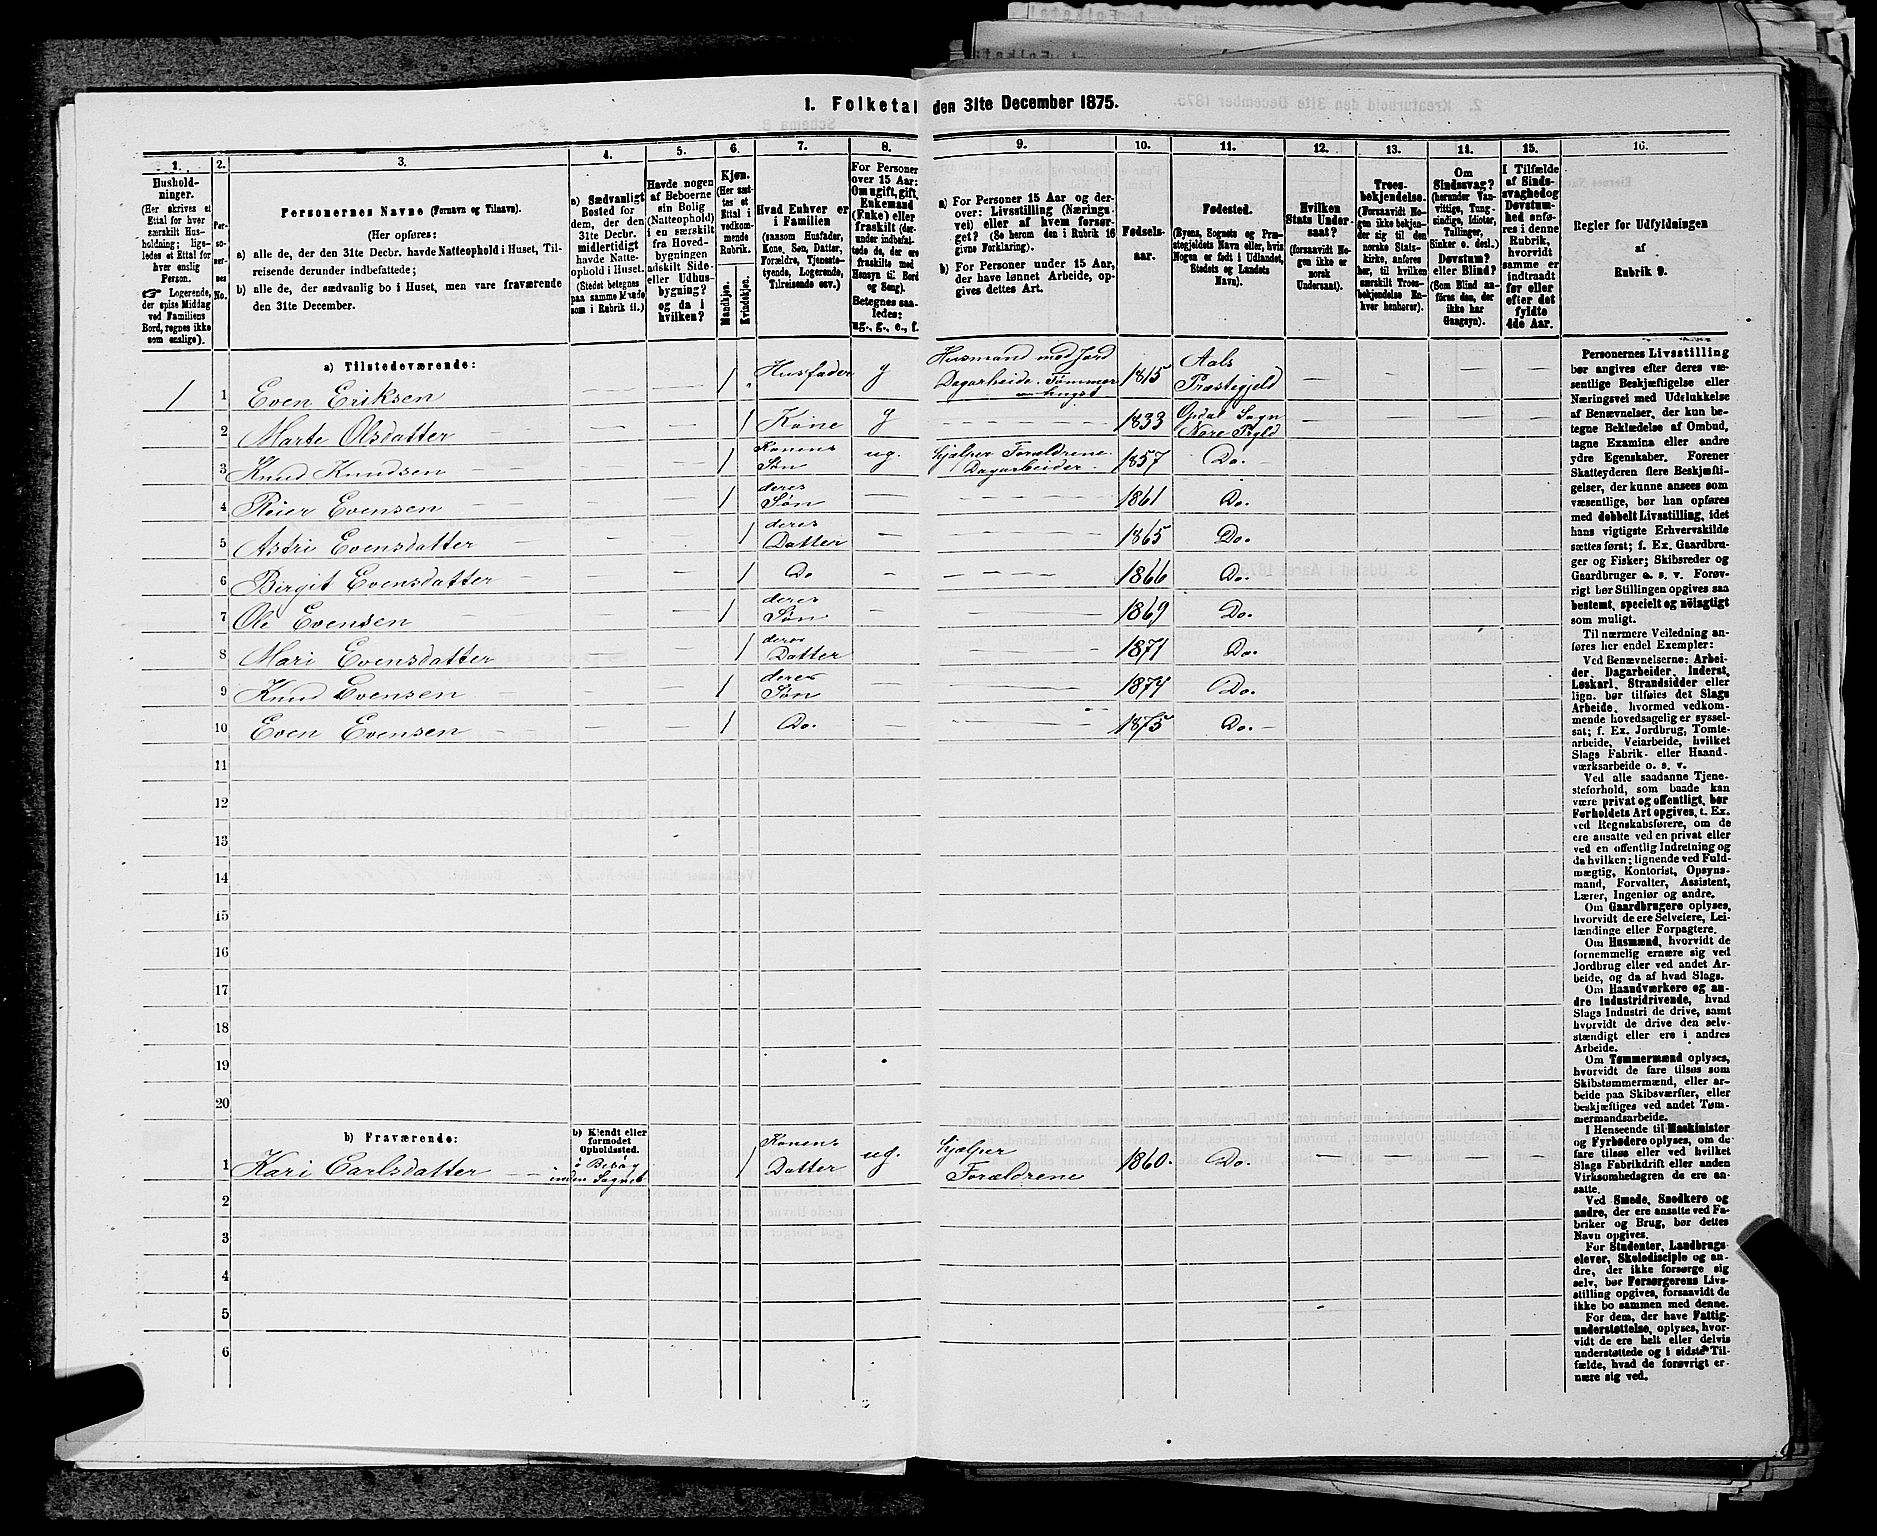 1. Folketal den 31te December 1875.
1. 2. 3. 4. 5. 6. 7. 8. 9. 10. 11. 12. 13. 14. 15. 16.
Hushold-
ninger.
(Her skrives et
Ettal for hver
særskilt Hus-
holdning; lige-
ledes et Ettal for
hver enslig
Person.
☞ Logerende,
der spise Middag
ved Familiens
Bord, regnes ikke
som enslige).
Per-
so-
ner-
nes
No.
Personernes Navne (Fornavn og Tilnavn).
(Her opføres:
a) alle de, der den 31te Decbr. havde Natteophold i Huset, Til-
reisende derunder indbefattede;
b) alle de, der sædvanlig bo i Huset, men vare fraværende
den 31te December.
a) Sædvanligt
Bosted for
dem, der den
31te Decbr.
midlertidigt
havde Natte-
ophold i Huset.
(Stedet betegnes
paa samme Maade
som i Rubrik 11.)
Havde nogen
af Beboerne
sin Bolig
(Natteophold)
i en særskilt
fra Hoved-
bygningen
adskilt Side-
eller Udhus-
bygning?
og da i
hvilken?
Kjøn.
(Her sæt-
tes et
Ettal i
vedkom-
mende
Rubrik.
Mandkjøn.
Kvindekjøn.
Hvad Enhver er
i Familien
(saasom Husfader,
Kone, Søn, Datter,
Forældre, Tjeneste-
tyende, Logerende,
Tilreisende osv.)
For Personer
over 15 Aar:
Om ugift, gift,
Enkemand
(Enke) eller
fraskilt (der-
under indbefat-
tede de, der ere
fraskilte med
Hensyn til Bord
og Seng).
Betegnes saa-
ledes:
ug., g., e., f.
a) For Personer 15 Aar og der-
over: Livsstilling (Nærings-
vei) eller af hvem forsør-
get? (Se herom den i Rubrik 16
givne Forklaring).
b) For Personer under 15 Aar,
der have lønnet Arbeide, op-
gives dettes Art.
Fødsels-
aar.
Fødested.
(Byens, Sognets og Præ-
stegjeldets Navn eller, hvis
Nogen er født i Udlandet,
Stedets og Landets
Navn).
Hvilken
Stats Under-
saat?
(forsaavidt No-
gen ikke er
norsk
Undersaat).
Troes-
bekjendelse.
(Forsaavidt No-
gen ikke bekjen-
der sig til den
norske Stats-
kirke, anføres
her, til hvilken
særskilt Troes-
bekjendelse En-
hver henhører).
Om
Sindssvag?
(herunder Van-
vittige, Tung-
sindige, Idioter,
Tullinger,
Sinker o. desl.)
Døvstum?
eller Blind?
(Som Blind an-
føres den, der
ikke har
Gangsyn).
I Tilfælde
af Sinds-
svaghed og
Døvstum-
hed anfø-
res i denne
Rubrik,
hvorvidt
samme er
indtraadt
før eller
efter det
fyldte
4de Aar.
Regler for Udfyldningen
af
Rubrik 9.
a) Tilstedeværende:
1 1 Even Eriksen — — 1 Husfader g Husmand med Jord Dagarbeide. Tømmer 1815 Aals Præstegjeld — — — —
2 Marte Olsdatter — — 1 Kone g — 1833 Opdal Sogn Nore Pgld — — — —
3 Knud Knudsen — — — 1 Konens Søn ug. hjælper Forældrene. Dagarbeider. 1857 Do. — — — —
4 Reier Evensen — — — 1 deres Søn — — 1861 Do.
5 Astri Evensdatter — — — 1 deres Datter — — 1865 Do.
6 Birgit Evensdatter — — — 1 Do — — 1866 Do.
7 Ole Evensen — — 1 deres Søn — — 1869 Do.
8 Mari Evensdatter — — 1 deres Datter — — 1871 Do.
9 Knud Evensen — — — 1 deres Søn — — 1874 Do.
10 Even Evensen — — — 1 Do. — — 1875 Do.
11
12
13
14
15
16
17
18
19
20
b) Fraværende:
b) Kjendt eller
formodet
Opholdssted.
1 Kari Carlsdatter — — i Besøg inden Sognet 1 Konens Datter ug. hjælper Forældrene 1860. Do. — — — —
2
3
4
5
6
Personernes Livsstilling
bør angives efter deres væ-
sentlige Beskjæftigelse eller
Næringsvei med Udelukkelse
af Benævnelser, der kun be-
tegne Beklædelse af Ombud,
tagne Examina eller andre
ydre Egenskaber. Forener
Skatteyderen flere Beskjæfti-
gelser, der kunne ansees som
væsentlige, bør han opføres
med dobbelt Livsstilling, idet
hans vigtigste Erhvervskilde
sættes først; f. Ex. Gaardbru-
ger og Fisker; Skibsreder og
Gaardbruger o. s. v. Forøv-
rigt bør Stillingen opgives saa
bestemt, specielt og nöiagtigt
som muligt.
Til nærmere Veiledning an-
føres her endel Exempler:
Ved Benævnelserne: Arbei-
der, Dagarbeider, Inderst,
Løskarl, Strandsidder eller
lign. bør tilføies det Slags
Arbeide, hvormed vedkom-
mende hovedsagelig er syssel-
sat; f. Ex. Jordbrug, Tomte-
arbeide, Veiarbeide, hvilket
Slags Fabrik- eller Haand-
værksarbeide o. s. v.
Ved alle saadanne Tjene-
steforhold, som baade kan
være privat og offentligt, bør
Forholdets Art opgives, t. Ex.
ved Regnskabsførere, om de
ere ansatte ved en privat eller
ved en offentlig Indretning og
da hvilken; lignende ved Fuld-
mægtig, Kontorist, Opsyns-
mand, Forvalter, Assistent,
Lærer, Ingeniør og andre.
Om Gaardbrugere oplyses,
hvorvidt de ere Selveiere, Lei-
lændinge eller Forpagtere.
Om Husmænd, hvorvidt de
fornemmelig ernære sig ved
Jordbrug eller ved andet Ar-
beide, og da af hvad Slags.
Om Haandværkere og an-
dre Industridrivende, hvad
Slags Industri de drive, samt
hvorvidt de drive den selv-
stændigt eller ere i andres
Arbeide.
Om Tømmermænd oplyses,
hvorvidt de fare tilsøs som
Skibstømmermænd, eller ar-
beide paa Skibsværfter, eller
beskjæftiges ved andet Tøm-
mermandsarbeide.
I Henseende til Maskinister
og Fyrbødere oplyses, om de
fare tilsøs eller ved hvilket
Slags Fabrikdrift eller anden
Virksomhedsgren de ere an-
satte.
Ved Smede, Snedkere og
andre, der ere ansatte ved Fa-
briker og Brug, bør dettes
Navn opgives.
For Studenter, Landbrugs-
elever, Skoledisciple og an-
dre, der ikke forsørge sig
selv, bør Forsørgerens Livs-
stilling opgives, forsaavidt de
ikke bo sammen med denne.
For dem, der have Fattig-
understøttelse, oplyses, hvor-
vidt de ere helt eller delvis
understøttede og i sidste Til-
fælde, hvad de forøvrigt er-
nære sig ved.